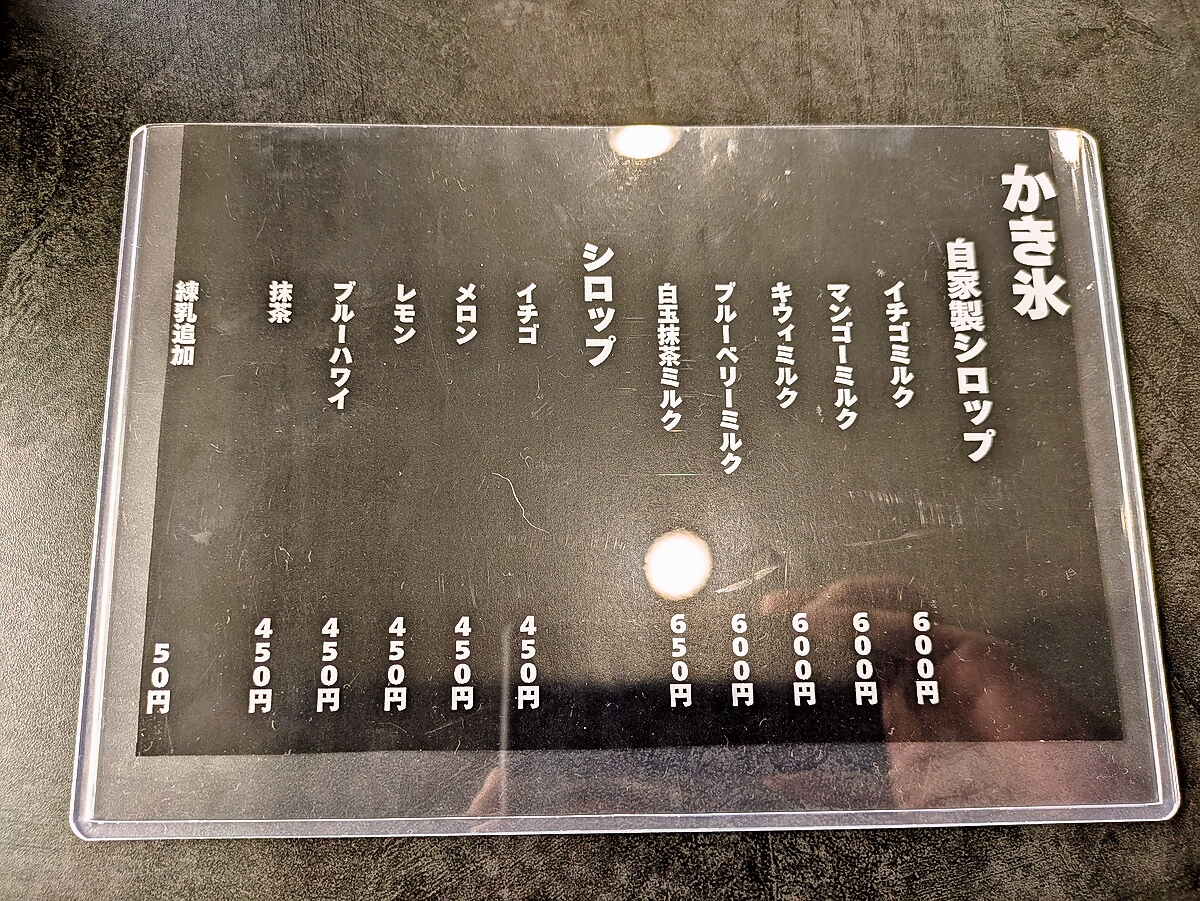 かき氷
自家製シロップ
イチゴミルク 600円
マンゴーミルク 600円
キウィミルク 600円
ブルーベリーミルク 600円
白玉抹茶ミルク 650円
シロップ
イチゴ 450円
メロン 450円
レモン 450円
ブルーハワイ 450円
抹茶 450円
練乳追加 50円